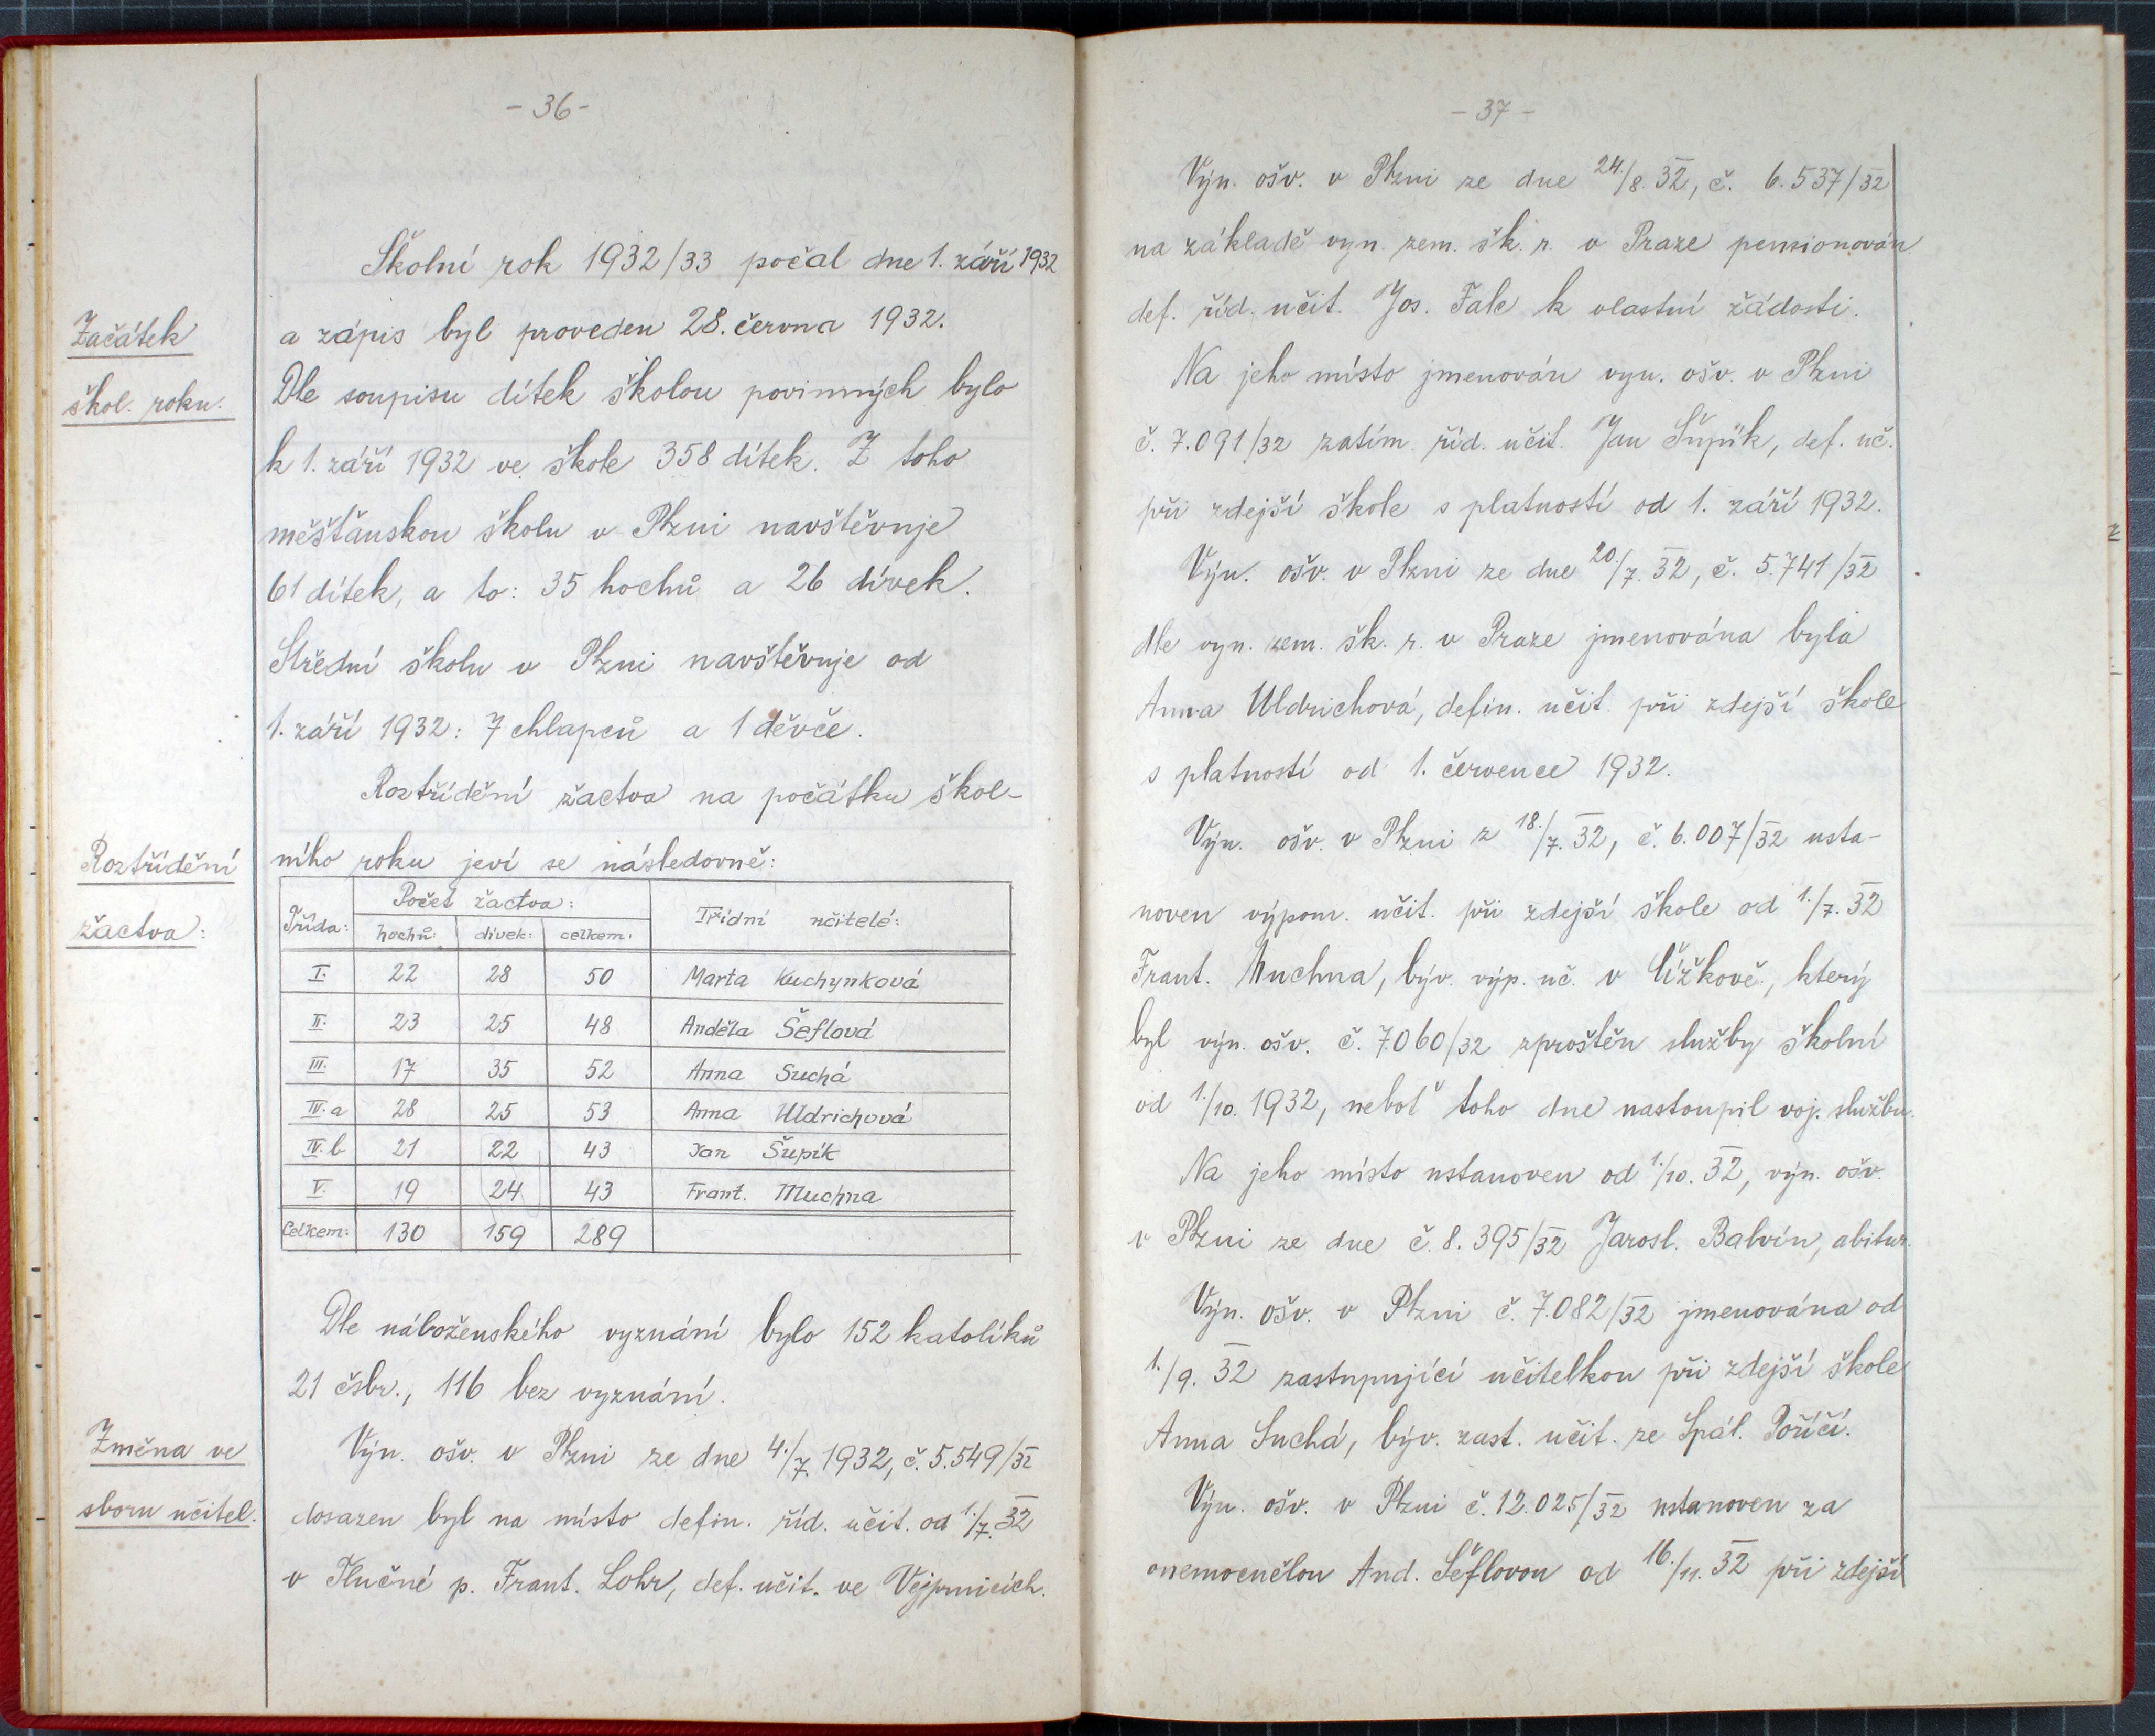 - 36 -
Školní rok 1932/33 počal dne 1. září 1932
Začátek
škol. roku.
a zápis byl proveden 28. června 1932.
Dle soupisu dítek školou povinných bylo
k 1. září 1932 ve škole 358 dítek. Z toho
měšťanskou školu v Plzni navštěvuje
61 dítek, a to: 35 hochů a 26 dívek.
Střední školu v Plzni navštěvuje od
1. září 1932: 7 chlapců a 1 děvče.
Roztřídění žactva na počátku škol-
Roztřídění
žactva:
ního roku jeví se následovně:
Třída: Počet žactva: Třídní učitelé:
hochů: dívek: celkem:
I. 22 28 50 Marta Kuchynková
II. 23 25 48 Anděla Šeflová
III. 17 35 52 Anna Suchá
IV. a 28 25 53 Anna Uldrichová
IV. b 21 22 43 Jan Šupík
V. 19 24 43 Frant. Muchna
Celkem: 130 159 289
Dle náboženského vyznání bylo 152 katolíků
21 čsbr., 116 bez vyznání.
Změna ve
sboru učitel.
Výn. ošv. v Plzni ze dne 4./7. 1932, č. 5.549/32
dosazen byl na místo defin. říd. učit. od 1./7. 32
v Tlučné p. Frant. Lohr, def. učit. ve Vejprnicích.
- 37 -
Výn. ošv. v Plzni ze dne 24./8. 32, č. 6.537/32
na základě vyn. zem. šk. r. v Praze pensionován
def. říd. učit. Jos. Fale k vlastní žádosti.
Na jeho místo jmenován vyn. ošv. v Plzni
č. 7.091/32 zatím. říd. učit. Jan Šupík, def. uč.
při zdejší škole s platností od 1. září 1932.
Výn. ošv. v Plzni ze dne 20./7. 32, č. 5.741/32
dle vyn. zem. šk. r. v Praze jmenována byla
Anna Uldrichová, defin. učit. při zdejší škole
s platností od 1. července 1932.
Výn. ošv. v Plzni z 18./7. 32, č. 6.007/32 usta-
noven výpom. učit. při zdejší škole od 1./7. 32
Frant. Muchna, býv. výp. uč. v Úžkově, který
byl výn. ošv. č. 7060/32 zproštěn služby školní
od 1./10. 1932, neboť toho dne nastoupil voj. službu.
Na jeho místo ustanoven od 1./10. 32, výn. ošv.
v Plzni ze dne č. 8.395/32 Jarosl. Balvín, abitur.
Výn. ošv. v Plzni č. 7.082/32 jmenována od
1./9. 32 zastupující učitelkou při zdejší škole
Anna Suchá, býv. zast. učit. ze Spál. Poříčí.
Výn. ošv. v Plzni č. 12.025/32 ustanoven za
onemocnělou And. Šéflovou od 16./11. 32 při zdejší